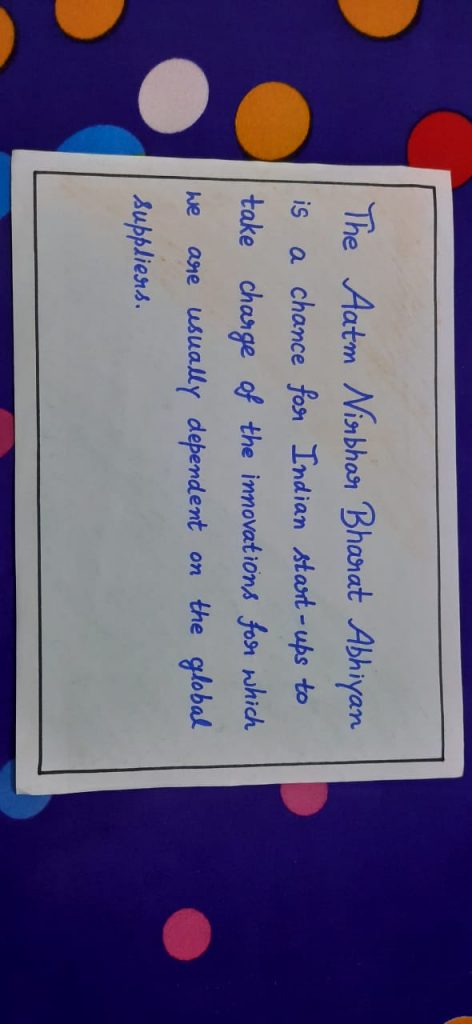 The Aatm Nirbhar Bharat Abhiyan
is a chance for Indian start-ups to
take charge of the innovations for which
we are usually dependent on the global
suppliers.